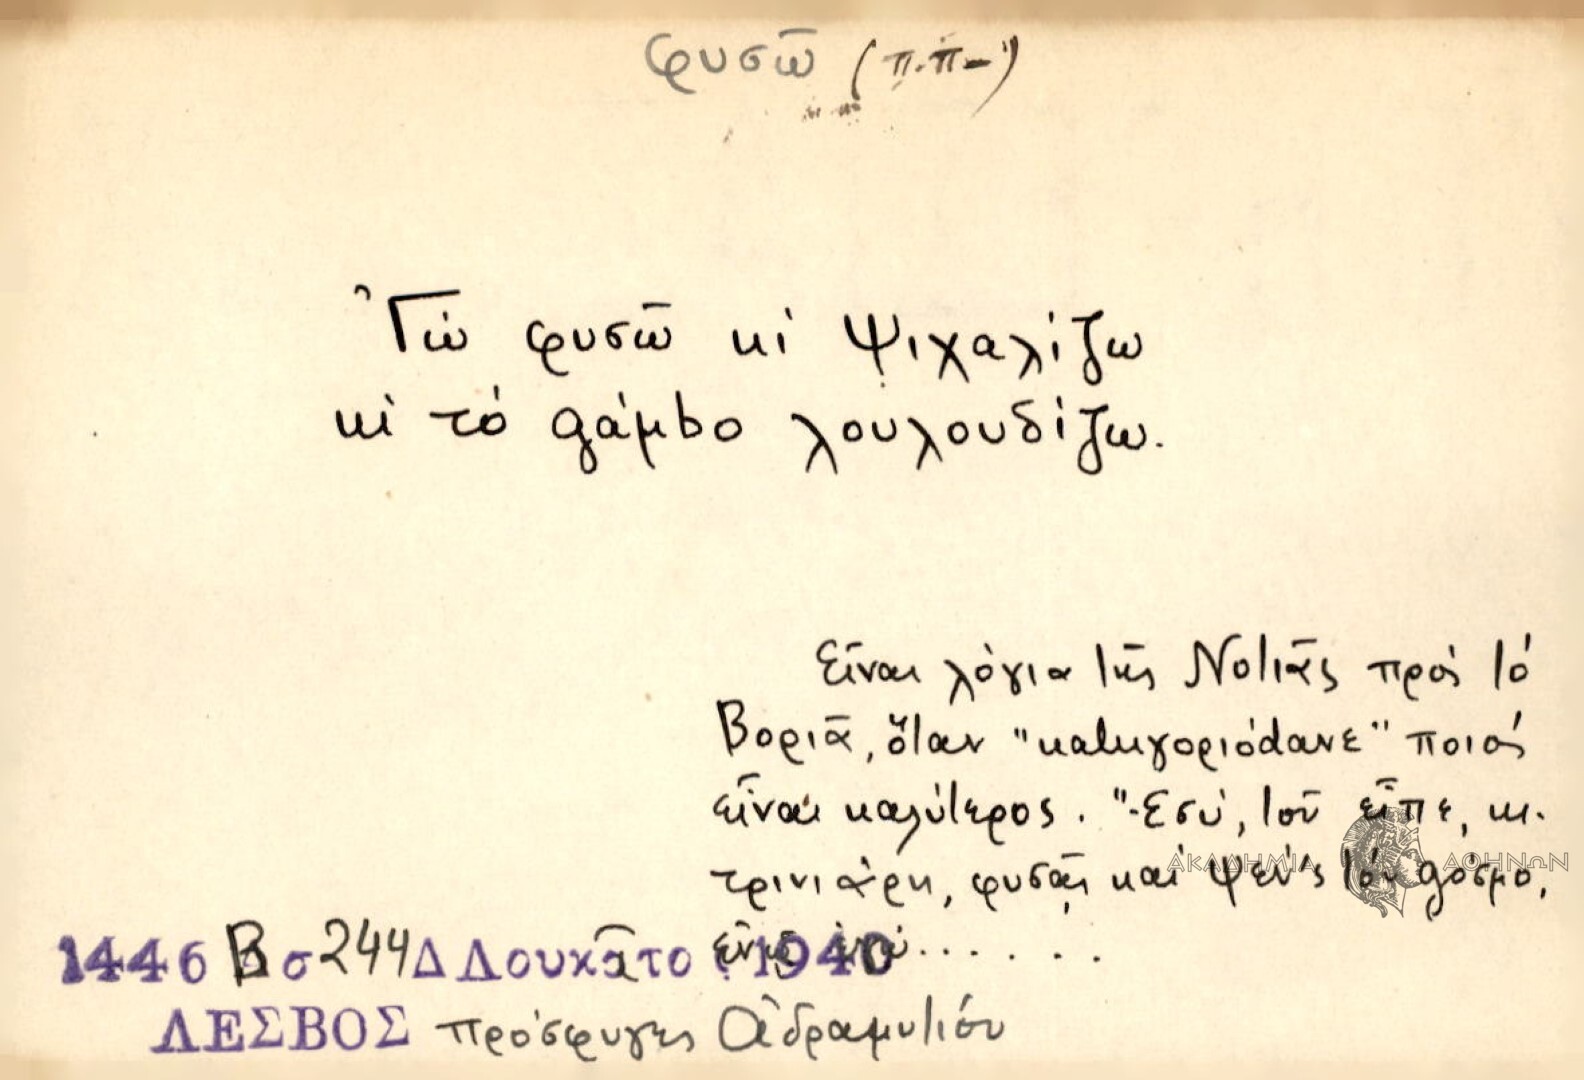 φυσῶ (π.π-)
Ἰγὼ φυσῶ κὶ ψιχαλίζω
κὶ τὸ gάμbο λουλουδίζω.
Εἶναι λόγια τῆς Νοτιᾶς πρὸς τὸ
Βοριᾶ, ὅταν "κατηγοριόdανε" ποιὸς
εἶναι καλύτερος. "-Ἐσύ, τοῦ εἶπε, κι-
τρινιάρη, φυσᾷς καὶ ψεν'ς τὸν gόσμο,
ἐνῷ ἐγὼ......
1446 Β σ 244 Δ Λουκᾶτο 1940
ΛΕΣΒΟΣ πρόσφυγες Ἀδραμυτίου
ΑΚΑΔΗΜΙΑ ΑΘΗΝΩΝ